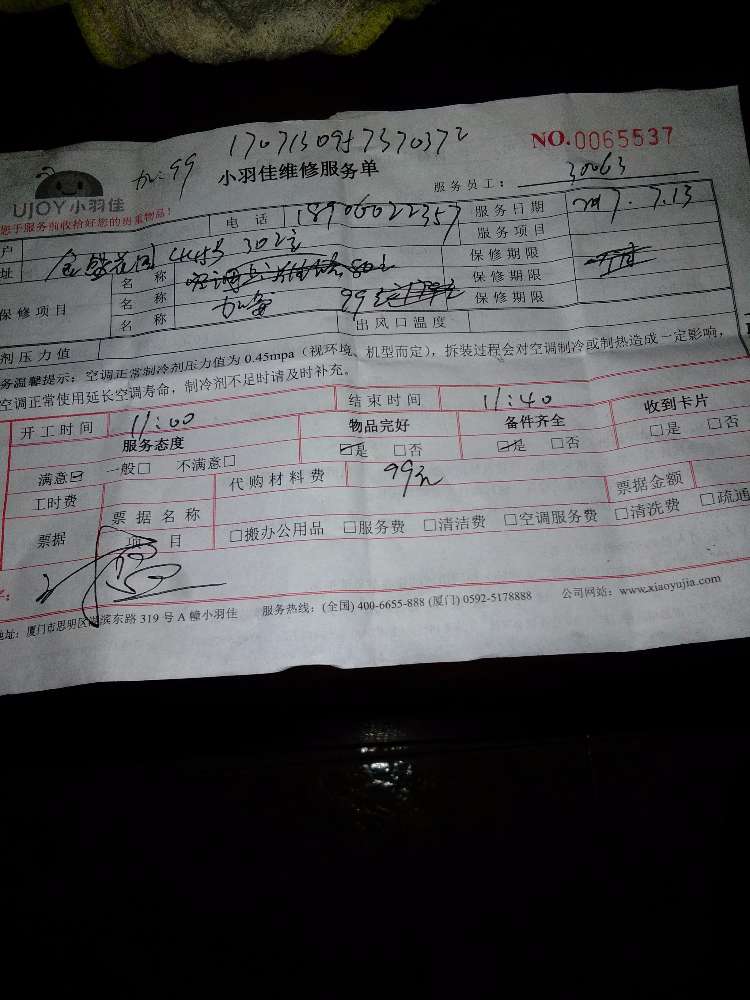 1707130957370372
NO.0065537
加:99
小羽佳维修服务单
服务员工： 30063
UJOY小羽佳
您于服务前收拾好您的贵重物品！
户 电话 18906022357 服务日期 2017.7.13
址 302室 服务项目
保修项目 名称 保修期限
名称 加氨 99 保修期限
名称 保修期限
剂压力值 出风口温度
务温馨提示：空调正常制冷剂压力值为 0.45mpa（视环境、机型而定），拆装过程会对空调制冷或制热造成一定影响，
空调正常使用延长空调寿命，制冷剂不足时请及时补充。
开工时间 11:00 结束时间 11:40
服务态度 物品完好 备件齐全 收到卡片
满意☑ 一般□ 不满意□ ☑是 □否 ☑是 □否 □是 □否
工时费 代购材料费 99元 票据金额
票据 票据名称
项目 □搬办公用品 □服务费 □清洁费 □空调服务费 □清洗费 □疏通
地址：厦门市思明区湖滨东路 319 号 A 幢小羽佳 服务热线：(全国) 400-6655-888 (厦门) 0592-5178888 公司网站：www.xiaoyujia.com